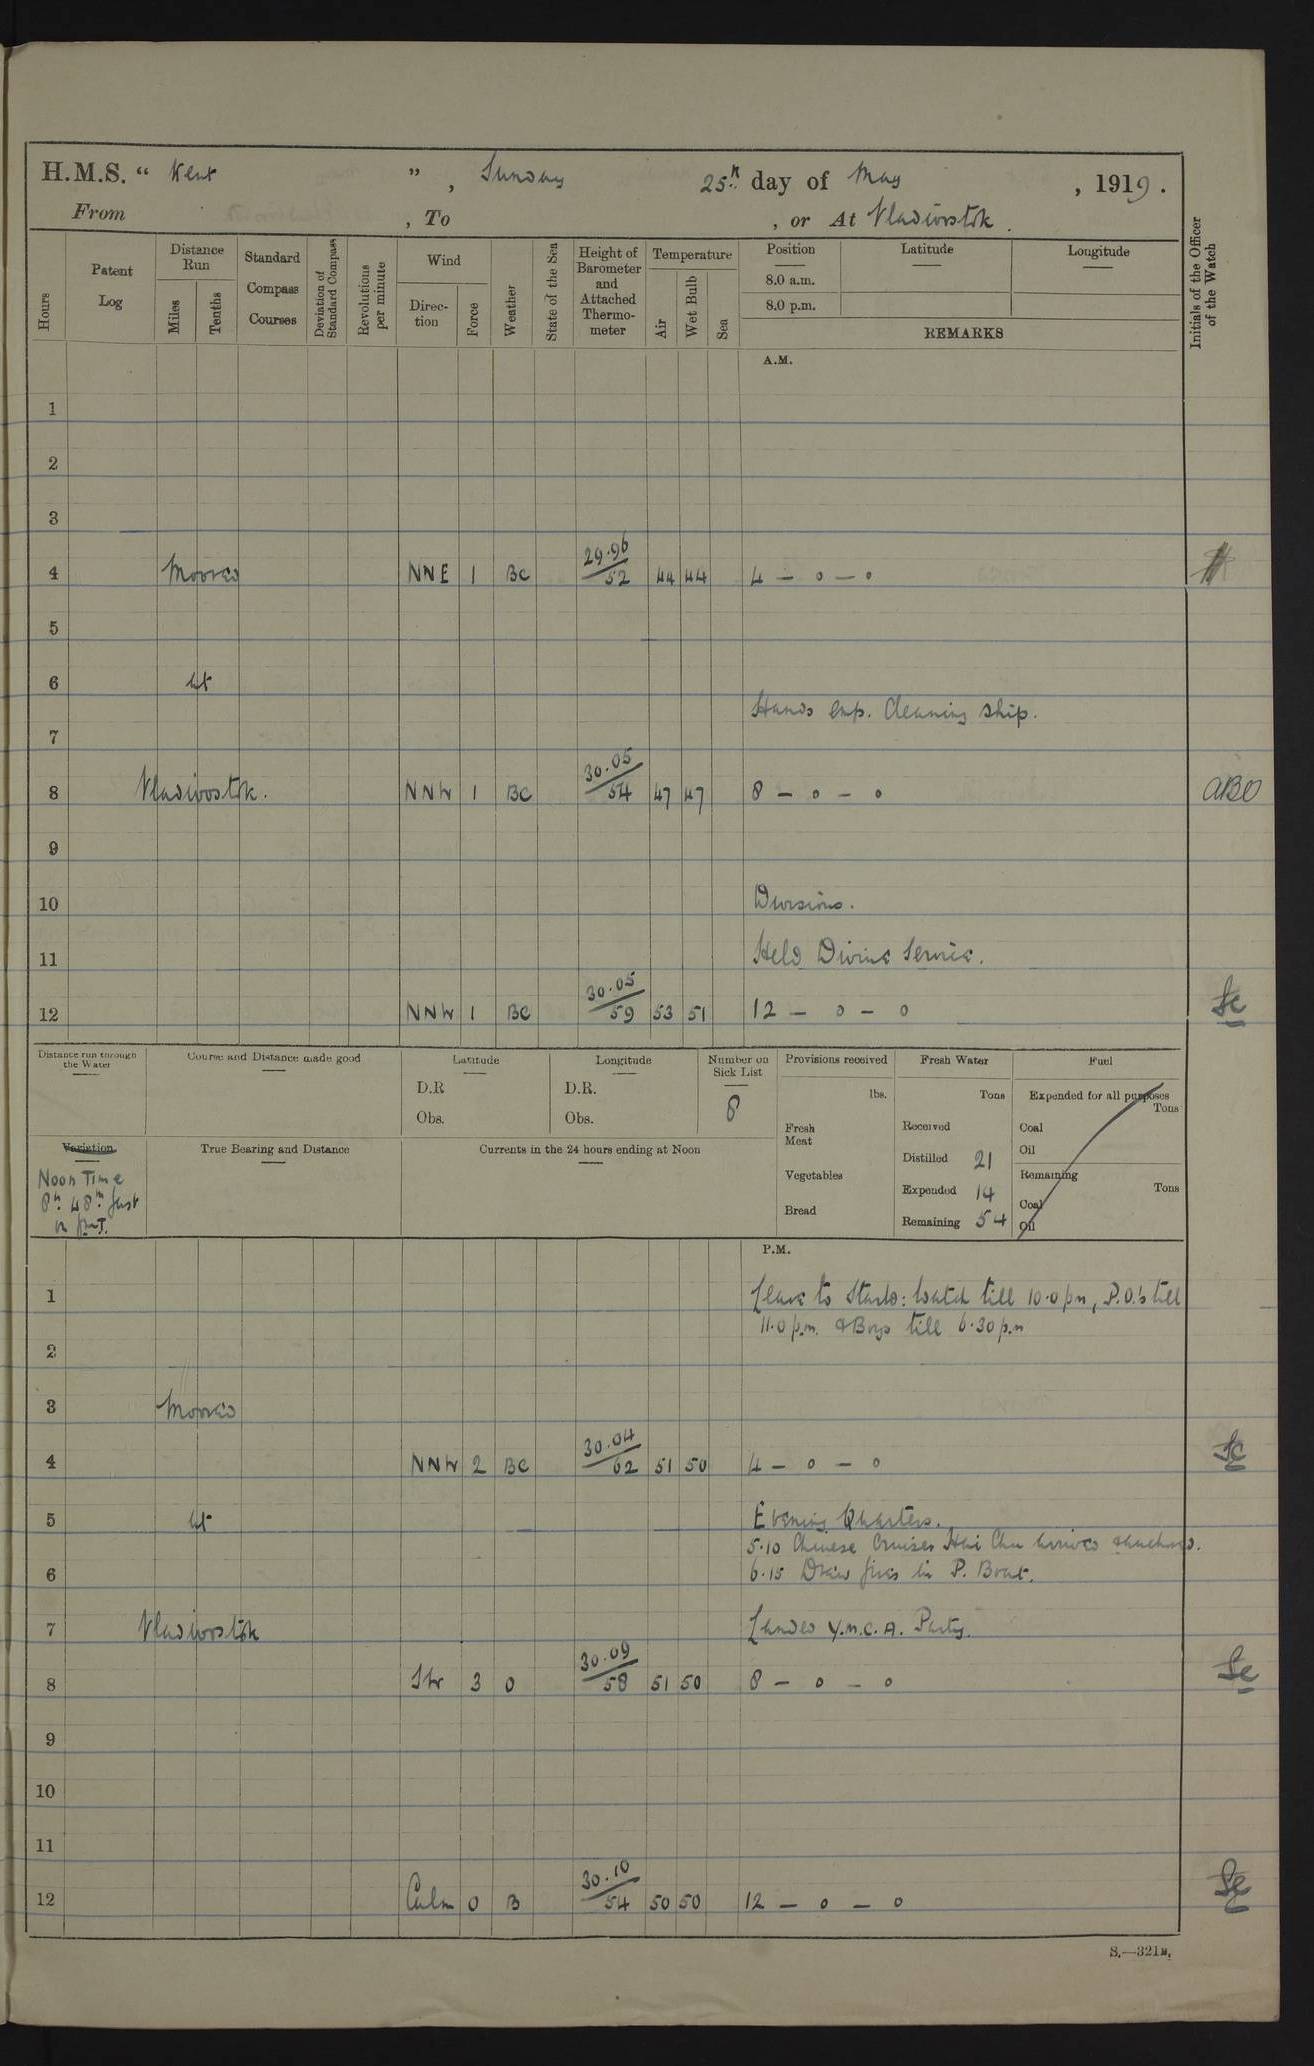 H.M.S. “ Kent ” , Sunday 25th day of May , 1919 .
From , To , or At Vladivostok .
Hours
Patent Log
Distance Run
Miles
Tenths
Standard Compass Courses
Deviation of Standard Compass
Revolutions per minute
Wind
Direc-tion
Force
Weather
State of the Sea
Height of Barometer and Attached Thermo-meter
Temperature
Air
Wet Bulb
Sea
Position
8.0 a.m.
8.0 p.m.
Latitude
Longitude
REMARKS
Initials of the Officer of the Watch
A.M.
1
2
3
29.96
4 Moored NNE 1 BC 52 44 44 4 — o — o
5
6 at
Hands emp. Cleaning Ship.
7
30.05
8 Vladivostok. NNW 1 BC 54 47 47 8 — o — o ABO
9
10 Divisions.
11 Held Divine Service.
30.05
12 NNW 1 BC 59 53 51 12 — o — o
Distance run through the Water
Course and Distance made good
Latitude
D.R
Obs.
Longitude
D.R.
Obs.
Number on Sick List
8
Provisions received
lbs.
Fresh Meat
Vegetables
Bread
Fresh Water
Tons
Received
Distilled 21
Expended 14
Remaining 54
Fuel
Expended for all purposes
Tons
Coal
Oil
Remaining
Tons
Coal
Oil
Variation
Noon Time
8h. 48m fast
on GMT.
True Bearing and Distance
Currents in the 24 hours ending at Noon
P.M.
1 Leave to Starbd: Watch till 10.0 pm, P.O.'s till
11.0 p.m. & Boys till 6.30 p.m
2
3 Moored
30.04
4 NNW 2 BC 62 51 50 4 — o — o
5 at Evening Quarters.
5.10 Chinese Cruiser Hai Chu arrived & anchored.
6 6.15 Drew fires in P. Boat.
7 Vladivostok Landed Y.M.C.A. Party.
30.09
8 SW 3 O 58 51 50 8 — o — o
9
10
11
30.10
12 Calm 0 B 54 50 50 12 — o — o
S.—321B.